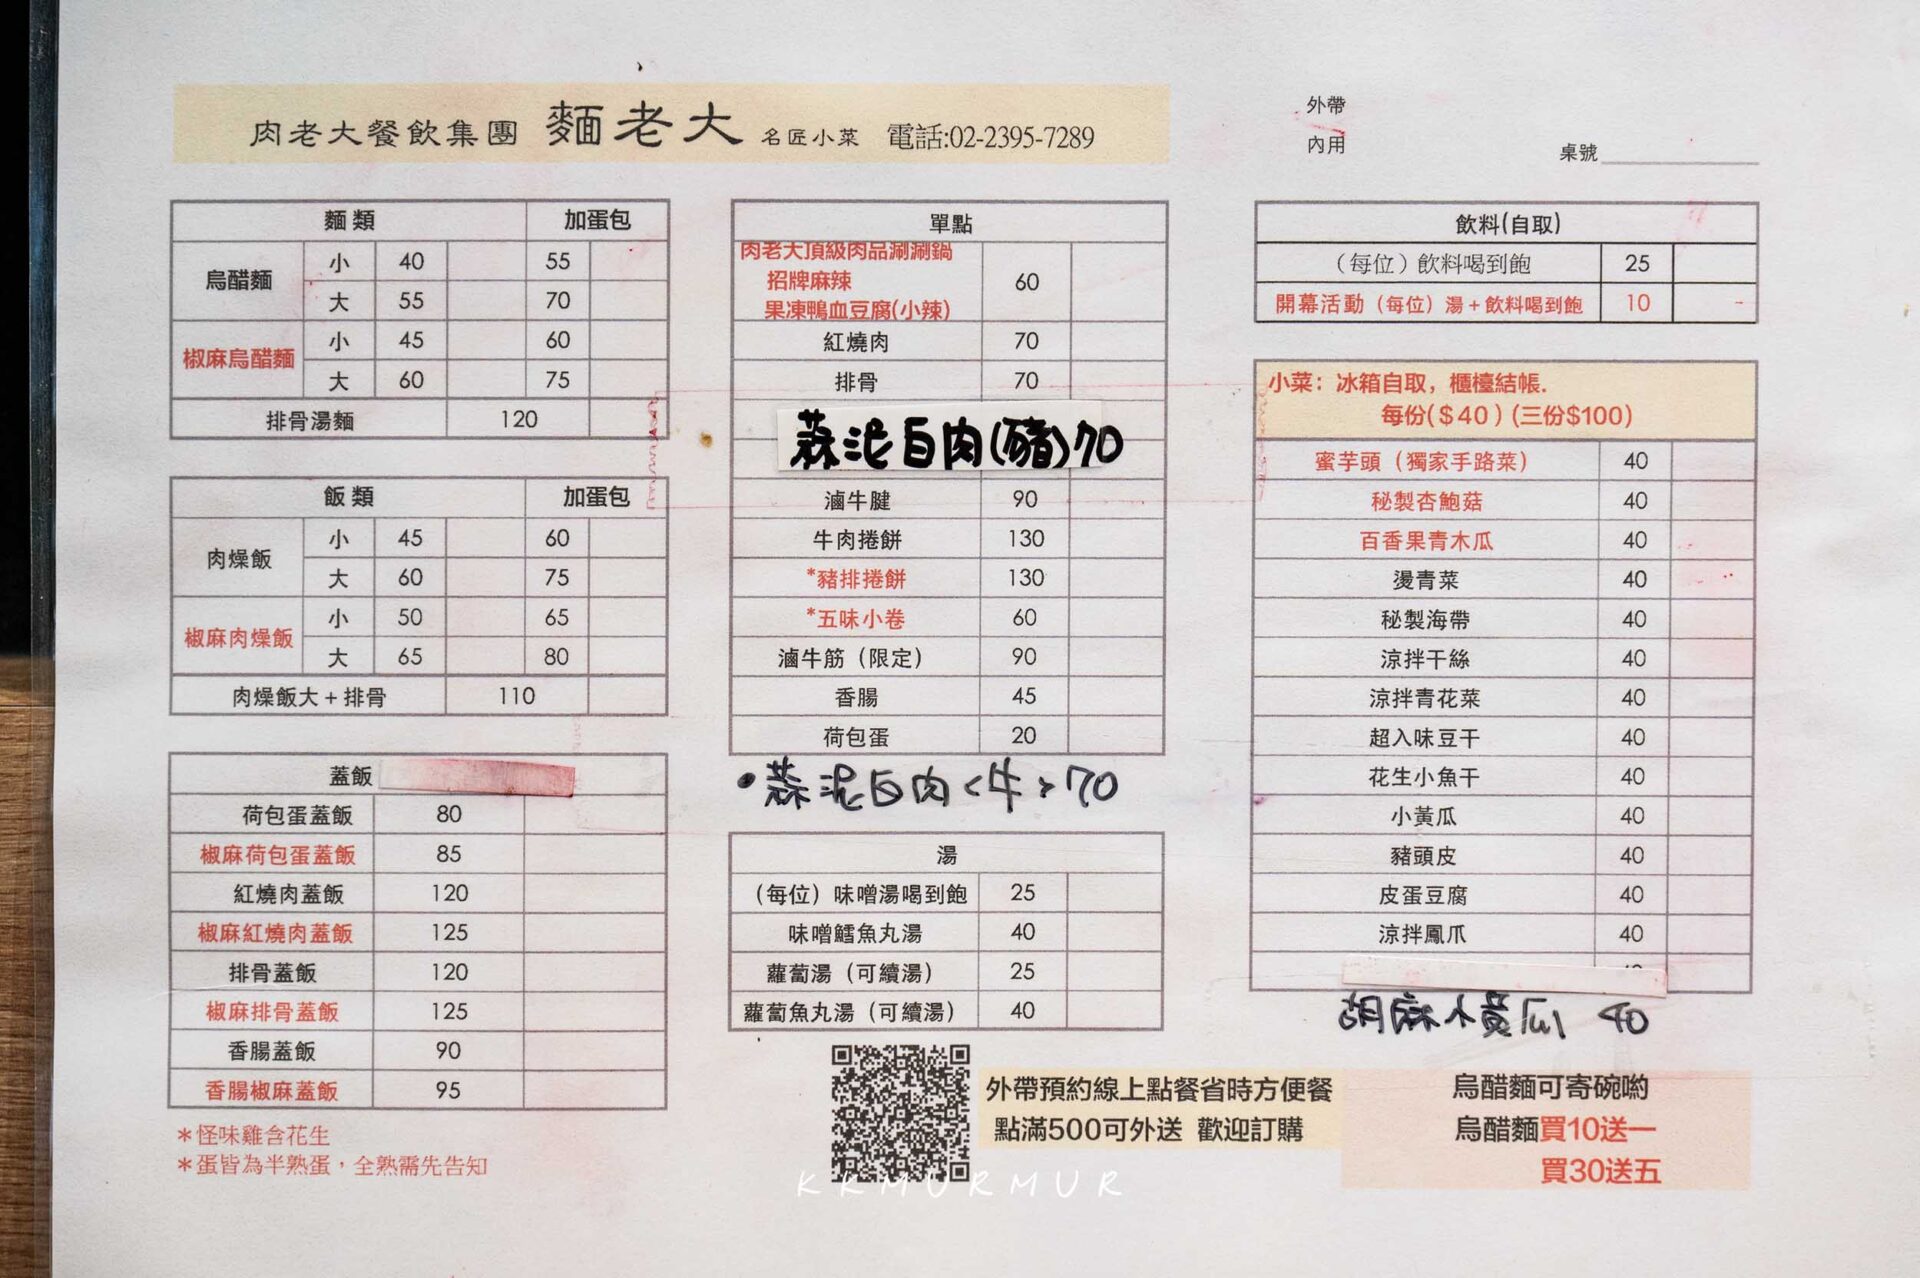 肉老大餐飲集團 麵老大 名匠小菜 電話:02-2395-7289
外帶
內用
桌號
麵類 加蛋包
烏醋麵 小 40 55
大 55 70
椒麻烏醋麵 小 45 60
大 60 75
排骨湯麵 120
飯類 加蛋包
肉燥飯 小 45 60
大 60 75
椒麻肉燥飯 小 50 65
大 65 80
肉燥飯大+排骨 110
蓋飯
荷包蛋蓋飯 80
椒麻荷包蛋蓋飯 85
紅燒肉蓋飯 120
椒麻紅燒肉蓋飯 125
排骨蓋飯 120
椒麻排骨蓋飯 125
香腸蓋飯 90
香腸椒麻蓋飯 95
*怪味雞含花生
*蛋皆為半熟蛋，全熟需先告知
單點
肉老大頂級肉品涮涮鍋
招牌麻辣 60
果凍鴨血豆腐(小辣)
紅燒肉 70
排骨 70
蒜泥白肉(豬)70
滷牛腱 90
牛肉捲餅 130
*豬排捲餅 130
*五味小卷 60
滷牛筋（限定） 90
香腸 45
荷包蛋 20
•蒜泥白肉<牛>70
湯
（每位）味噌湯喝到飽 25
味噌鱈魚丸湯 40
蘿蔔湯（可續湯） 25
蘿蔔魚丸湯（可續湯） 40
外帶預約線上點餐省時方便餐
點滿500可外送 歡迎訂購
飲料(自取)
（每位）飲料喝到飽 25
開幕活動（每位）湯+飲料喝到飽 10
小菜：冰箱自取，櫃檯結帳.
每份($40)(三份$100)
蜜芋頭（獨家手路菜） 40
秘製杏鮑菇 40
百香果青木瓜 40
燙青菜 40
秘製海帶 40
涼拌干絲 40
涼拌青花菜 40
超入味豆干 40
花生小魚干 40
小黃瓜 40
豬頭皮 40
皮蛋豆腐 40
涼拌鳳爪 40
胡麻小黃瓜 40
烏醋麵可寄碗喲
烏醋麵買10送一
買30送五
KKMURMUR